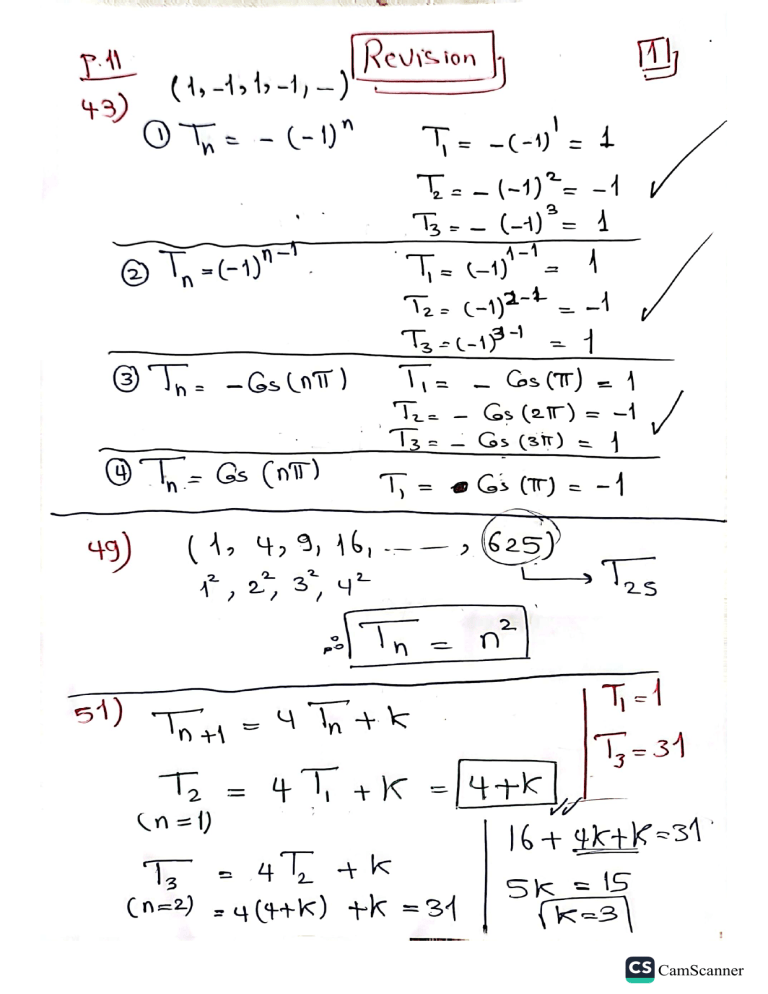 Revision
1
P.11
43) (1, -1, 1, -1, —)
① Tₙ = - (-1)ⁿ T₁ = -(-1)¹ = 1
T₂ = - (-1)² = -1 ✓
T₃ = - (-1)³ = 1
② Tₙ = (-1)ⁿ⁻¹ T₁ = (-1)¹⁻¹ = 1
T₂ = (-1)²⁻¹ = -1 ✓
T₃ = (-1)³⁻¹ = 1
③ Tₙ = - Cos (nπ) T₁ = - Cos (π) = 1
T₂ = - Cos (2π) = -1 ✓
T₃ = - Cos (3π) = 1
④ Tₙ = Cos (nπ) T₁ = Cos (π) = -1
49) (1, 4, 9, 16, -----, 625) → T₂₅
1², 2², 3², 4²
∴ Tₙ = n²
51) Tₙ₊₁ = 4 Tₙ + k T₁ = 1
T₃ = 31
T₂ = 4 T₁ + K = 4+K
(n=1)
T₃ = 4 T₂ + k
(n=2) = 4(4+K) + K = 31
16 + 4k+k = 31
5K = 15
K=3
CS CamScanner